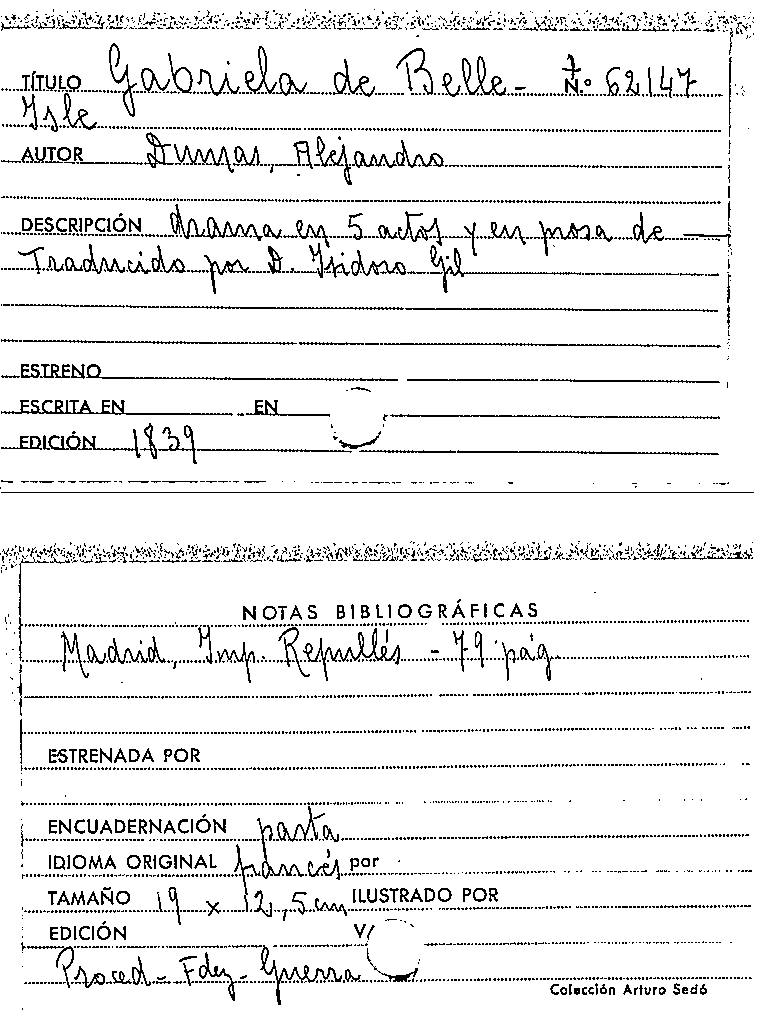 TÍTULO Gabriela de Belle- N.º 62147
Isle
AUTOR Dumas, Alejandro
DESCRIPCIÓN drama en 5 actos y en prosa de —
Traducido por D. Isidoro Gil
ESTRENO
ESCRITA EN EN
EDICIÓN 1839
NOTAS BIBLIOGRÁFICAS
Madrid, Imp. Repullés - 79 pág.
ESTRENADA POR
ENCUADERNACIÓN pasta
IDIOMA ORIGINAL francés por
TAMAÑO 19 x 12,5 cm ILUSTRADO POR
EDICIÓN
Proced- Fdez- Guerra
Colección Arturo Sedó